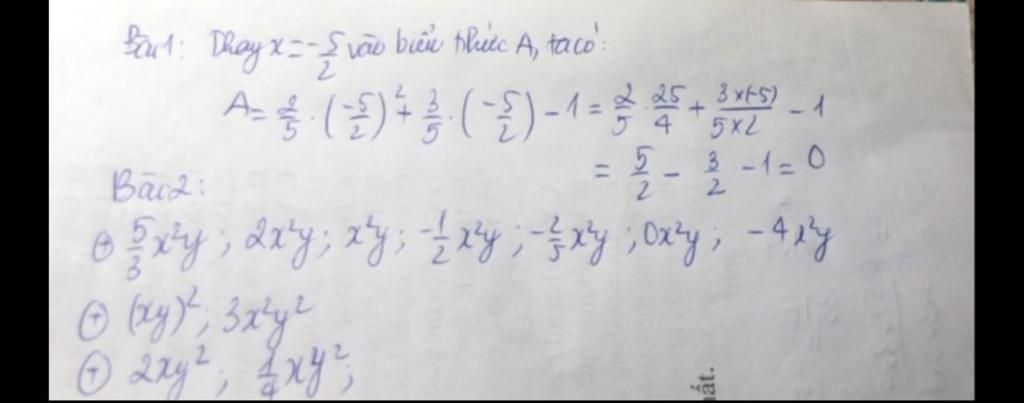 Bài 1: Thay x = -5/2 vào biểu thức A, ta có:
A = 2/5 . (-5/2)² + 3/5 . (-5/2) - 1 = 2/5 . 25/4 + 3×(-5)/5×2 - 1
= 5/2 - 3/2 - 1 = 0
Bài 2:
⊕ 5/3 x²y ; 2x²y ; x²y ; -1/2 x²y ; -2/5 x²y ; 0x²y ; -4x²y
⊕ (xy)² ; 3x²y²
⊕ 2xy² ; 1/4 xy² ;
ất.